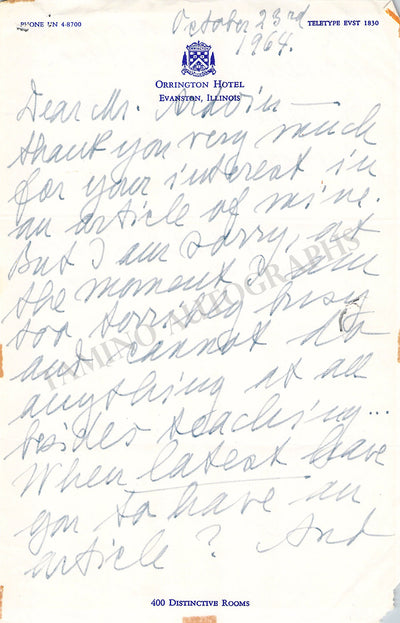 October 23rd
1964.
PHONE UN 4-8700
TELETYPE EVST 1830
ORRINGTON HOTEL
EVANSTON, ILLINOIS
Dear Mr.
thank you very much
for your interest in
an article of mine.
But I am sorry, at
the moment I am
too terribly busy
and cannot do
anything at all
besides teaching...
When latest have
you to have an
article? And
400 DISTINCTIVE ROOMS
TAMINO AUTOGRAPHS